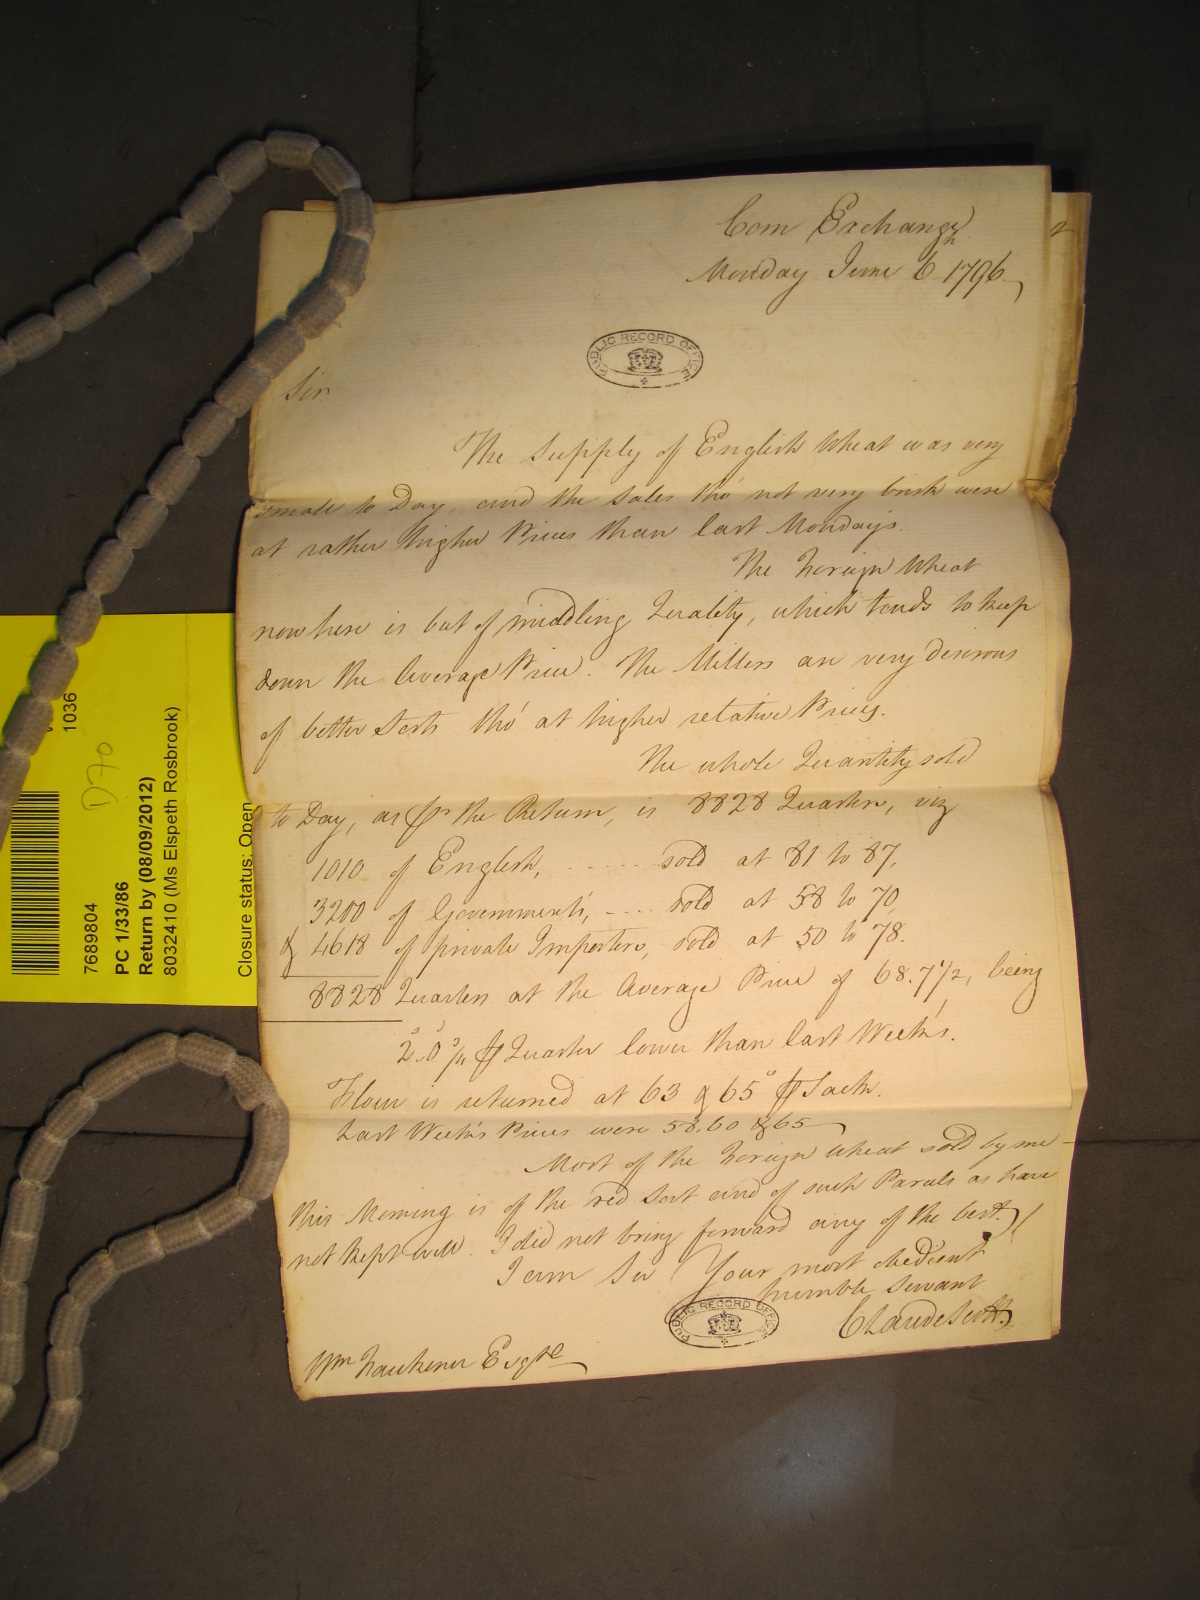 Corn Exchange
Monday June 6th 1796
PUBLIC RECORD OFFICE
Sir
The Supply of English Wheat was very
small to Day, and the Sales tho' not very brisk were
at rather higher Prices than last Monday's.
The Foreign Wheat
now here is but of middling Quality, which tends to keep
down the Average Price. The Millers are very desirous
of better Sorts tho' at higher relative Prices.
The whole Quantity sold
to Day, as pr the Return, is 8828 Quarters, viz
1010 of English, ....... sold at 81 to 87,
3200 of Governments, .... sold at 58 to 70
& 4618 of private Importers, sold at 50 to 78.
8828 Quarters at the Average Price of 68.7 1/2, being
2s.0d 3/4 pr Quarter lower than last Week's.
Flour is returned at 63 & 65s pr Sack.
Last Week's Prices were 58.60 & 65
Most of the Foreign Wheat sold by me
this Morning is of the red Sort and of such Parcels as have
not kept well. I did not bring forward any of the best.
I am Sir Your most obedient
humble Servant
Claude Scott
PUBLIC RECORD OFFICE
Wm Fawkener Esqre
1036
D70
7689804
PC 1/33/86
Return by (08/09/2012)
8032410 (Ms Elspeth Rosbrook)
Closure status: Open